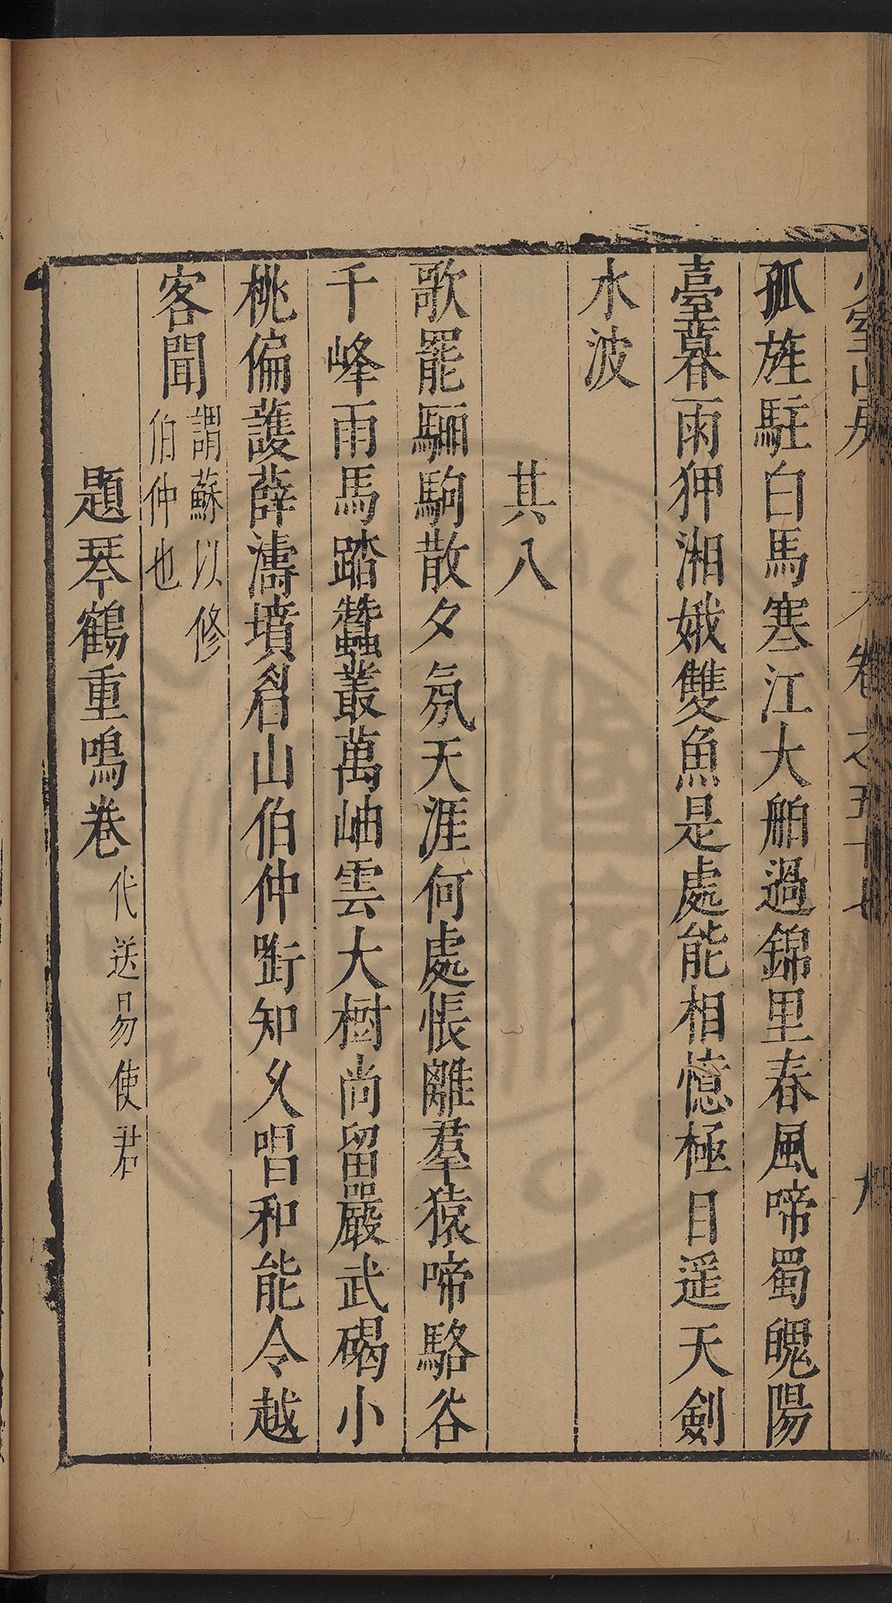 少室山房
卷之五十七
九
孤旌駐白馬寒江大舶過錦里春風啼蜀魄陽
臺暮雨狎湘娥雙魚是處能相憶極目遥天劍
水波
其八
歌罷驪駒散夕氛天涯何處悵離羣猿啼駱谷
千峰雨馬踏蠶叢萬岫雲大樹尚留嚴武碣小
桃偏護薛濤墳眉山伯仲斷知久唱和能令越
客聞
謂蘇以修
伯仲也
題琴鶴重鳴卷
代送易使君